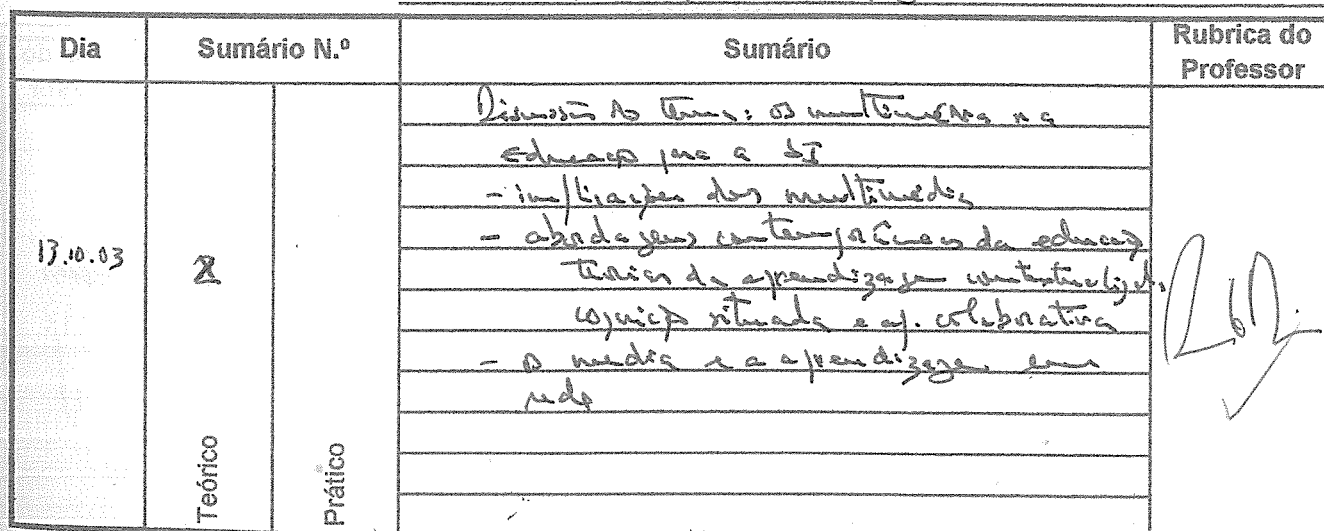 Dia
Sumário N.º
Sumário
Rubrica do
Professor
Discussão do tema: os multimédia na
educação para a SI
- implicações dos multimédia
- abordagens contemporâneas da educação
13.10.03
teorias da aprendizagem contextualizada,
cognição situada e ap. colaborativa
- os media e a aprendizagem em
rede
Teórico
Prático